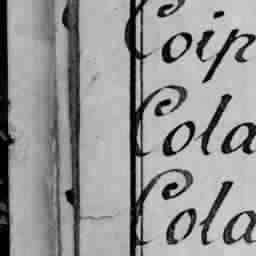 Coip
Cola
Cola